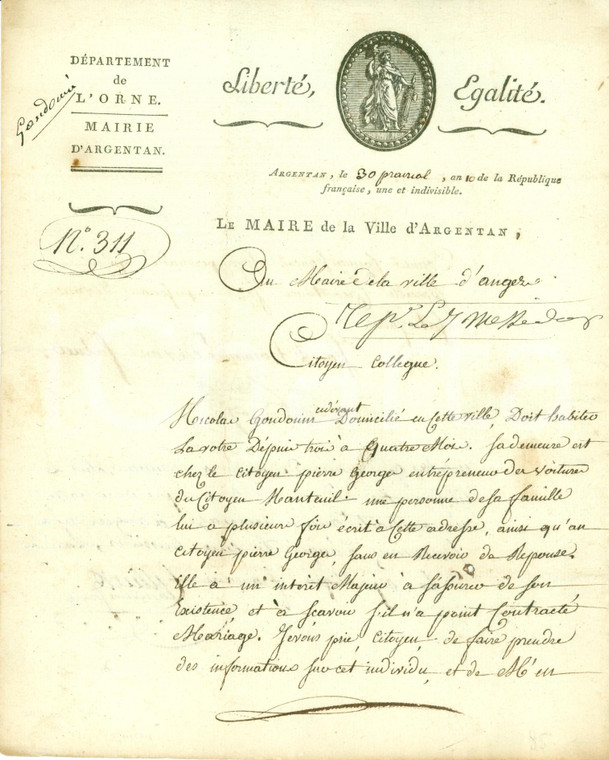 DÉPARTEMENT
de
L'ORNE.
MAIRIE
D'ARGENTAN.
Gondouin
Liberté, Egalité.
ARGENTAN, le 30 prairial, an 10 de la République
française, une et indivisible.
N.° 311
LE MAIRE de la Ville d'ARGENTAN,
Au Maire de la ville d'angers
Rep. Le 7 Messidor
Citoyen Collegue.
Nicolas Gondouin cidevant Domicilié en Cette ville, Doit habiter
La votre Depuis trois à Quatre Mois. sa demeure est
chez le Citoyen pierre George entrepreneur des voitures
du Citoyen Nanteuil. une personne de sa famille
lui a plusieurs fois écrit à Cette adresse, ainsi qu'au
Citoyen pierre George, sans en Recevoir de Reponse.
Elle à un interêt Majeur à s'assurer de son
Existence et à scavoir s'il n'a point Contracté
Mariage. Je vous prie, Citoyen, de faire prendre
des informations sur cet individu, et de M'en